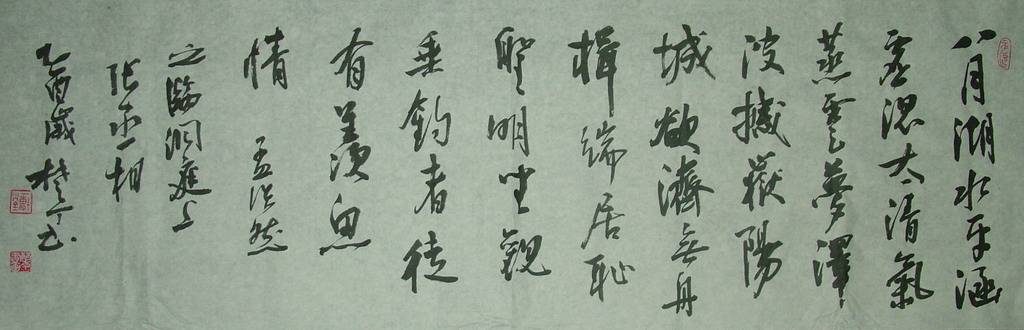 八月湖水平涵
虛混太清氣
蒸雲夢澤
波撼嶽陽
城欲濟無舟
楫端居恥
聖明坐觀
垂釣者徒
有羨魚
情 孟浩然
之臨洞庭上
张丞相
乙酉歲 书